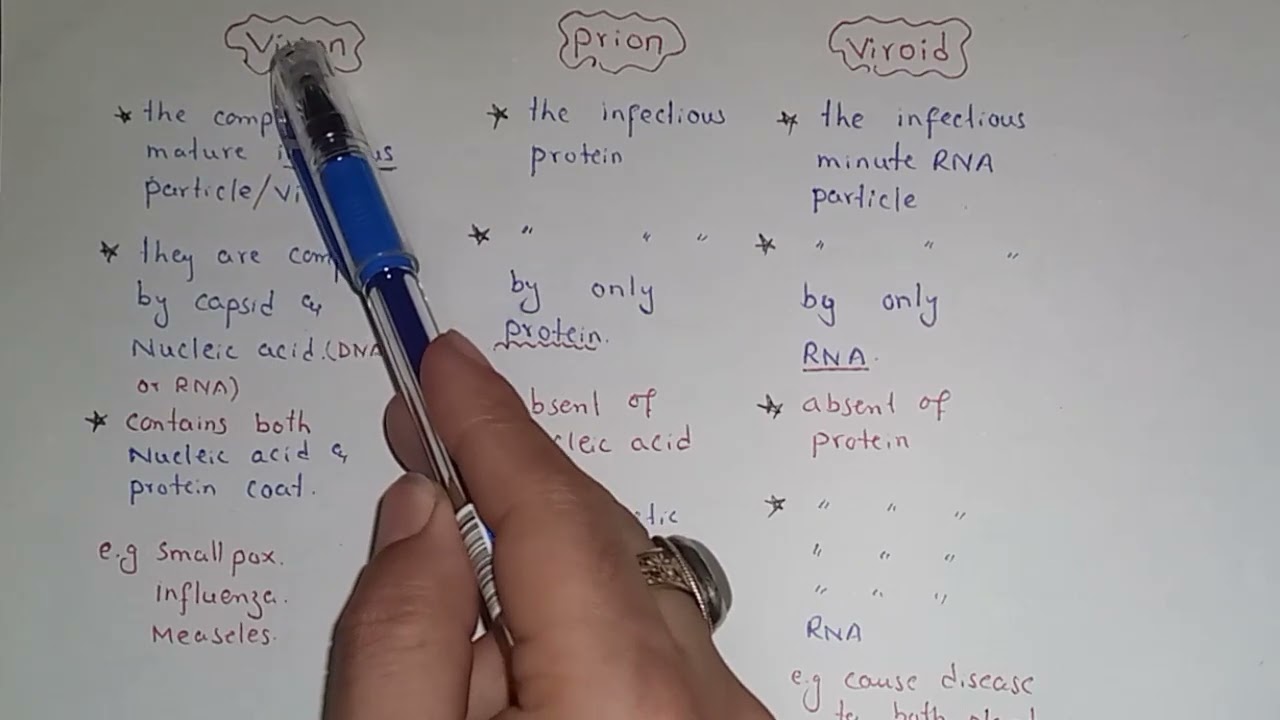 prion
viroid
★ the
mature
particle/
★ they are
by capsid &
Nucleic acid.(DNA
or RNA)
★ contains both
Nucleic acid &
protein coat.
e.g Small pox.
influenza.
Measeles.
★ the infectious
protein
★ " " "
by only
protein.
of
acid
★ the infectious
minute RNA
particle
★ " " "
by only
RNA.
★ absent of
protein
★ " " "
" " "
" " "
RNA
e.g cause disease
to both